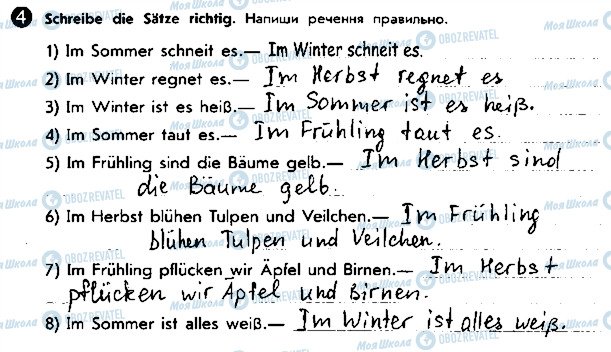 4 Schreibe die Sätze richtig. Напиши речення правильно.
1) Im Sommer schneit es.— Im Winter schneit es.
2) Im Winter regnet es.— Im Herbst regnet es
3) Im Winter ist es heiß.— Im Sommer ist es heiß.
4) Im Sommer taut es.— Im Frühling taut es.
5) Im Frühling sind die Bäume gelb.— Im Herbst sind
die Bäume gelb.
6) Im Herbst blühen Tulpen und Veilchen.— Im Frühling
blühen Tulpen und Veilchen.
7) Im Frühling pflücken wir Äpfel und Birnen.— Im Herbst
pflücken wir Äpfel und Birnen.
8) Im Sommer ist alles weiß.— Im Winter ist alles weiß.